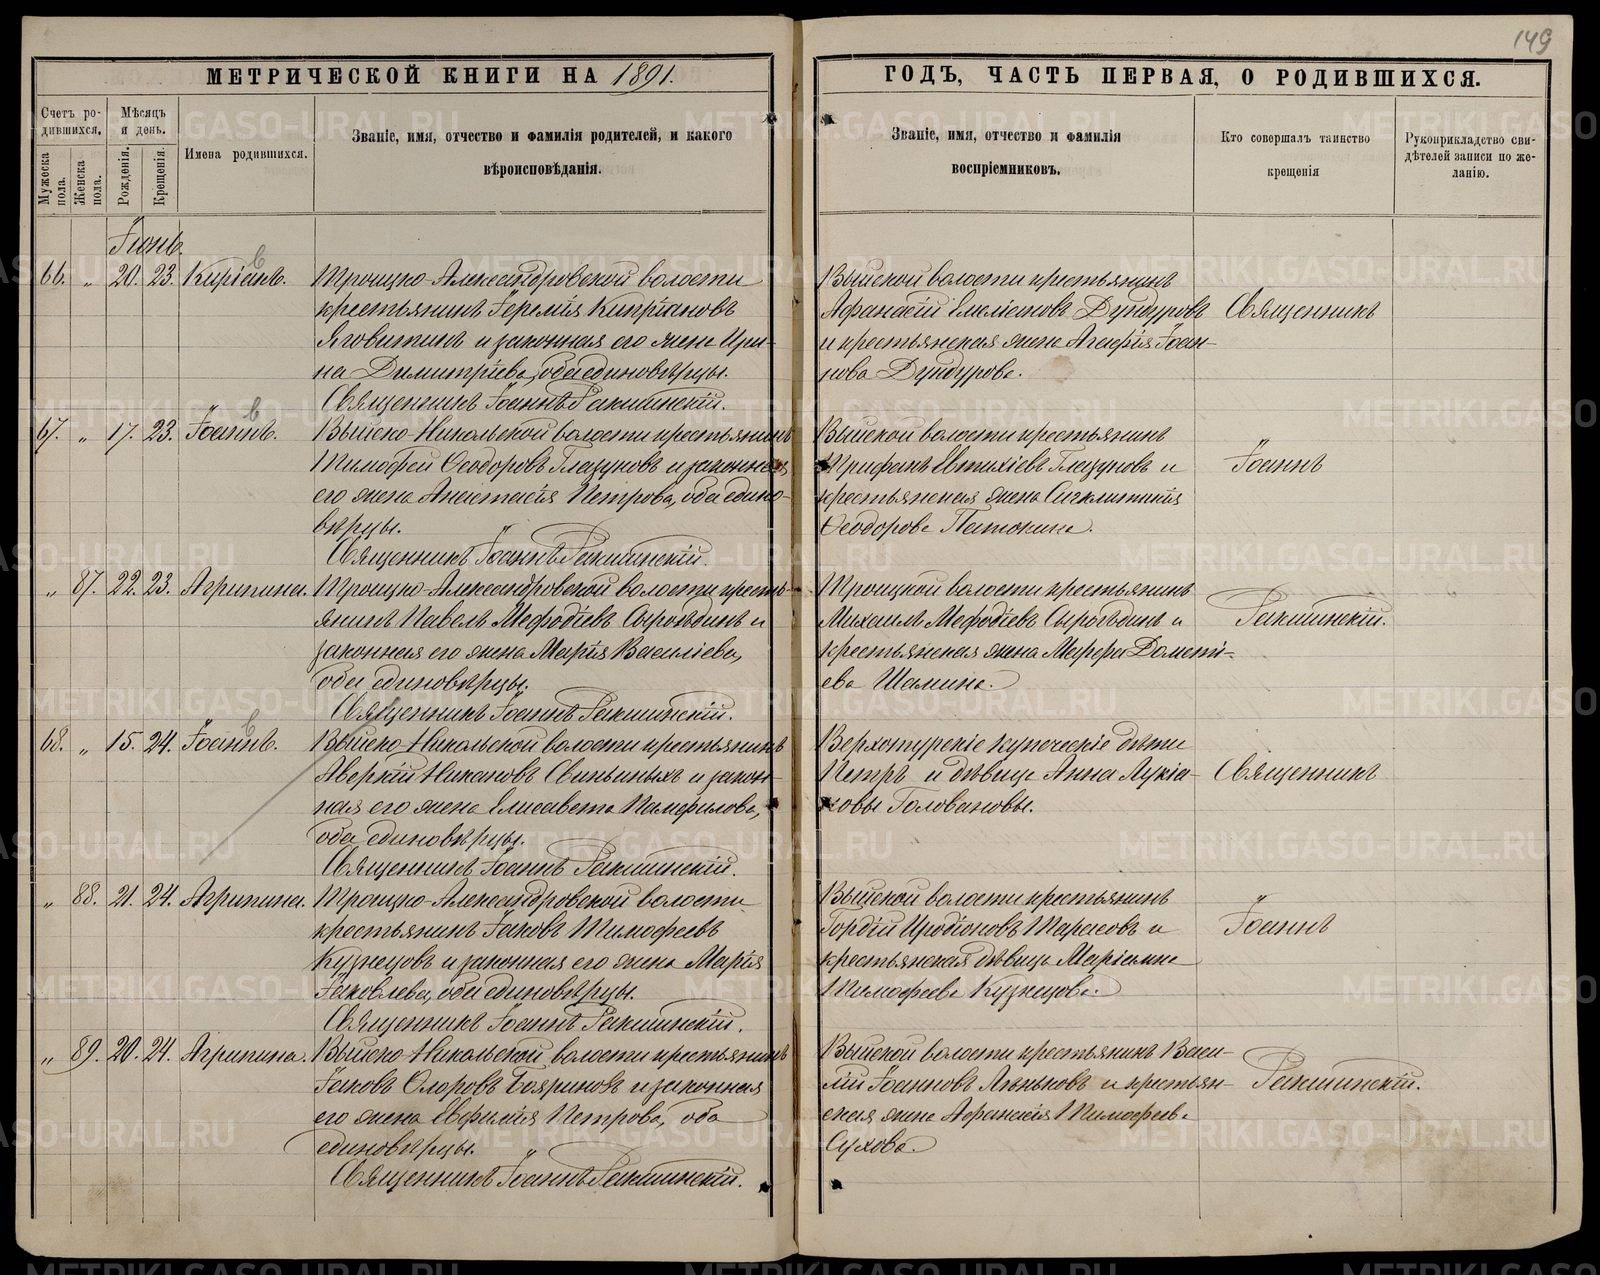 149
МЕТРИЧЕСКОЙ КНИГИ НА 1891.
ГОДЪ, ЧАСТЬ ПЕРВАЯ, О РОДИВШИХСЯ.
Счетъ ро-
дившихся.
Мужеска
пола.
Женска
пола.
Мѣсяцъ
и день.
Рожденія.
Крещенія.
Имена родившихся.
Званіе, имя, отчество и фамилія родителей, и какого
вѣроисповѣданія.
Званіе, имя, отчество и фамилія
воспріемниковъ.
Кто совершалъ таинство
крещенія
Рукоприкладство сви-
дѣтелей записи по же-
ланію.
Іюнь.
66. „ 20. 23. Киріакъ.
Троицко-Александровской волости
крестьянинъ Іеремія Кипріановъ
Яговитинъ и законная его жена Ири-
на Димитріева, оба единовѣрцы.
Священникъ Іоаннъ Ракшинскій.
Выйской волости крестьянинъ
Афанасій Дундуровъ
и крестьянская жена Агафія Іоан-
нова Дундурова.
Священникъ
67. „ 17. 23. Іоаннъ.
Выйско-Никольской волости крестьянинъ
Тимофей Ѳеодоровъ Глазуновъ и законная
его жена Анастасія Петрова, оба едино-
вѣрцы.
Священникъ Іоаннъ Ракшинскій.
Выйской волости крестьянинъ
Трифанъ Евтихіевъ Глазуновъ и
крестьянская жена Сигклитикія
Ѳеодорова Патокина.
Іоаннъ
„ 87. 22. 23. Агрипина.
Троицко-Александровской волости кресть-
янинъ Павелъ Мефодіевъ Сыроѣдинъ и
законная его жена Марія Василіева,
оба единовѣрцы.
Священникъ Іоаннъ Ракшинскій.
Троицкой волости крестьянинъ
Михаилъ Мефодіевъ Сыроѣдинъ и
крестьянская жена Домети-
ева Шамина.
Ракшинскій.
68. „ 15. 24. Іоаннъ.
Выйско-Никольской волости крестьянинъ
Аверкій Никановъ Свиньиныхъ и закон-
ная его жена Елисавета Памфилова,
оба единовѣрцы.
Священникъ Іоаннъ Ракшинскій.
Верхотурскіе купеческіе дѣти
Петръ и дѣвица Анна Лукіа-
новы Головановы.
Священникъ
„ 88. 21. 24. Агрипина.
Троицко-Александровской волости
крестьянинъ Іаковъ Тимофеевъ
Кузнецовъ и законная его жена Марія
Іаковлева, оба единовѣрцы.
Священникъ Іоаннъ Ракшинскій.
Выйской волости крестьянинъ
Гордій Иродіоновъ Тарасовъ и
крестьянская дѣвица Маріамна
Тимофеева Кузнецова.
Іоаннъ
„ 89. 20. 24. Агрипина.
Выйско-Никольской волости крестьянинъ
Іаковъ Бояриновъ и законная
его жена Евфимія Петрова, оба
единовѣрцы.
Священникъ Іоаннъ Ракшинскій.
Выйской волости крестьянинъ Васи-
лій Іоанновъ Ляньковъ и крестьян-
ская жена Афанасія Тимофеева
Сухова.
Ракшинскій.
METRIKI.GASO-URAL.RU